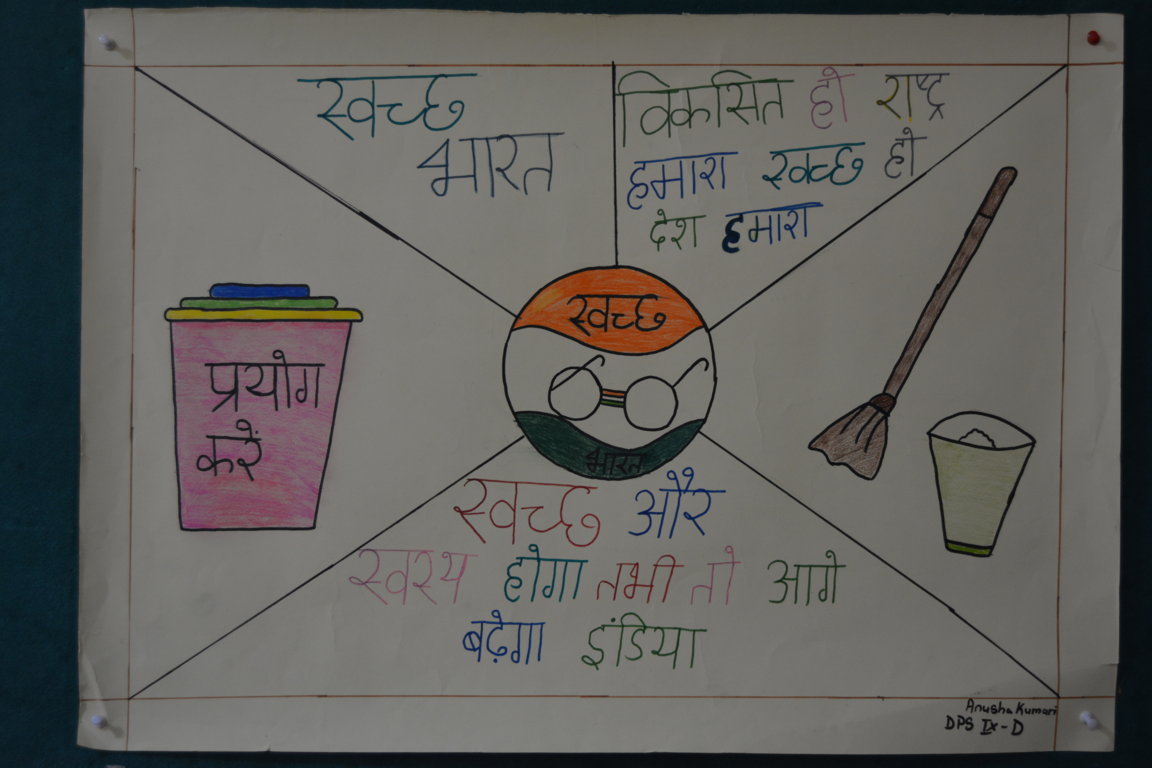 स्वच्छ
भारत
विकसित हो राष्ट्र
हमारा स्वच्छ हो
देश हमारा
स्वच्छ
भारत
प्रयोग
करें
स्वच्छ और
स्वस्थ होगा तभी तो आगे
बढ़ेगा इंडिया
Anusha Kumari
DPS IX-D